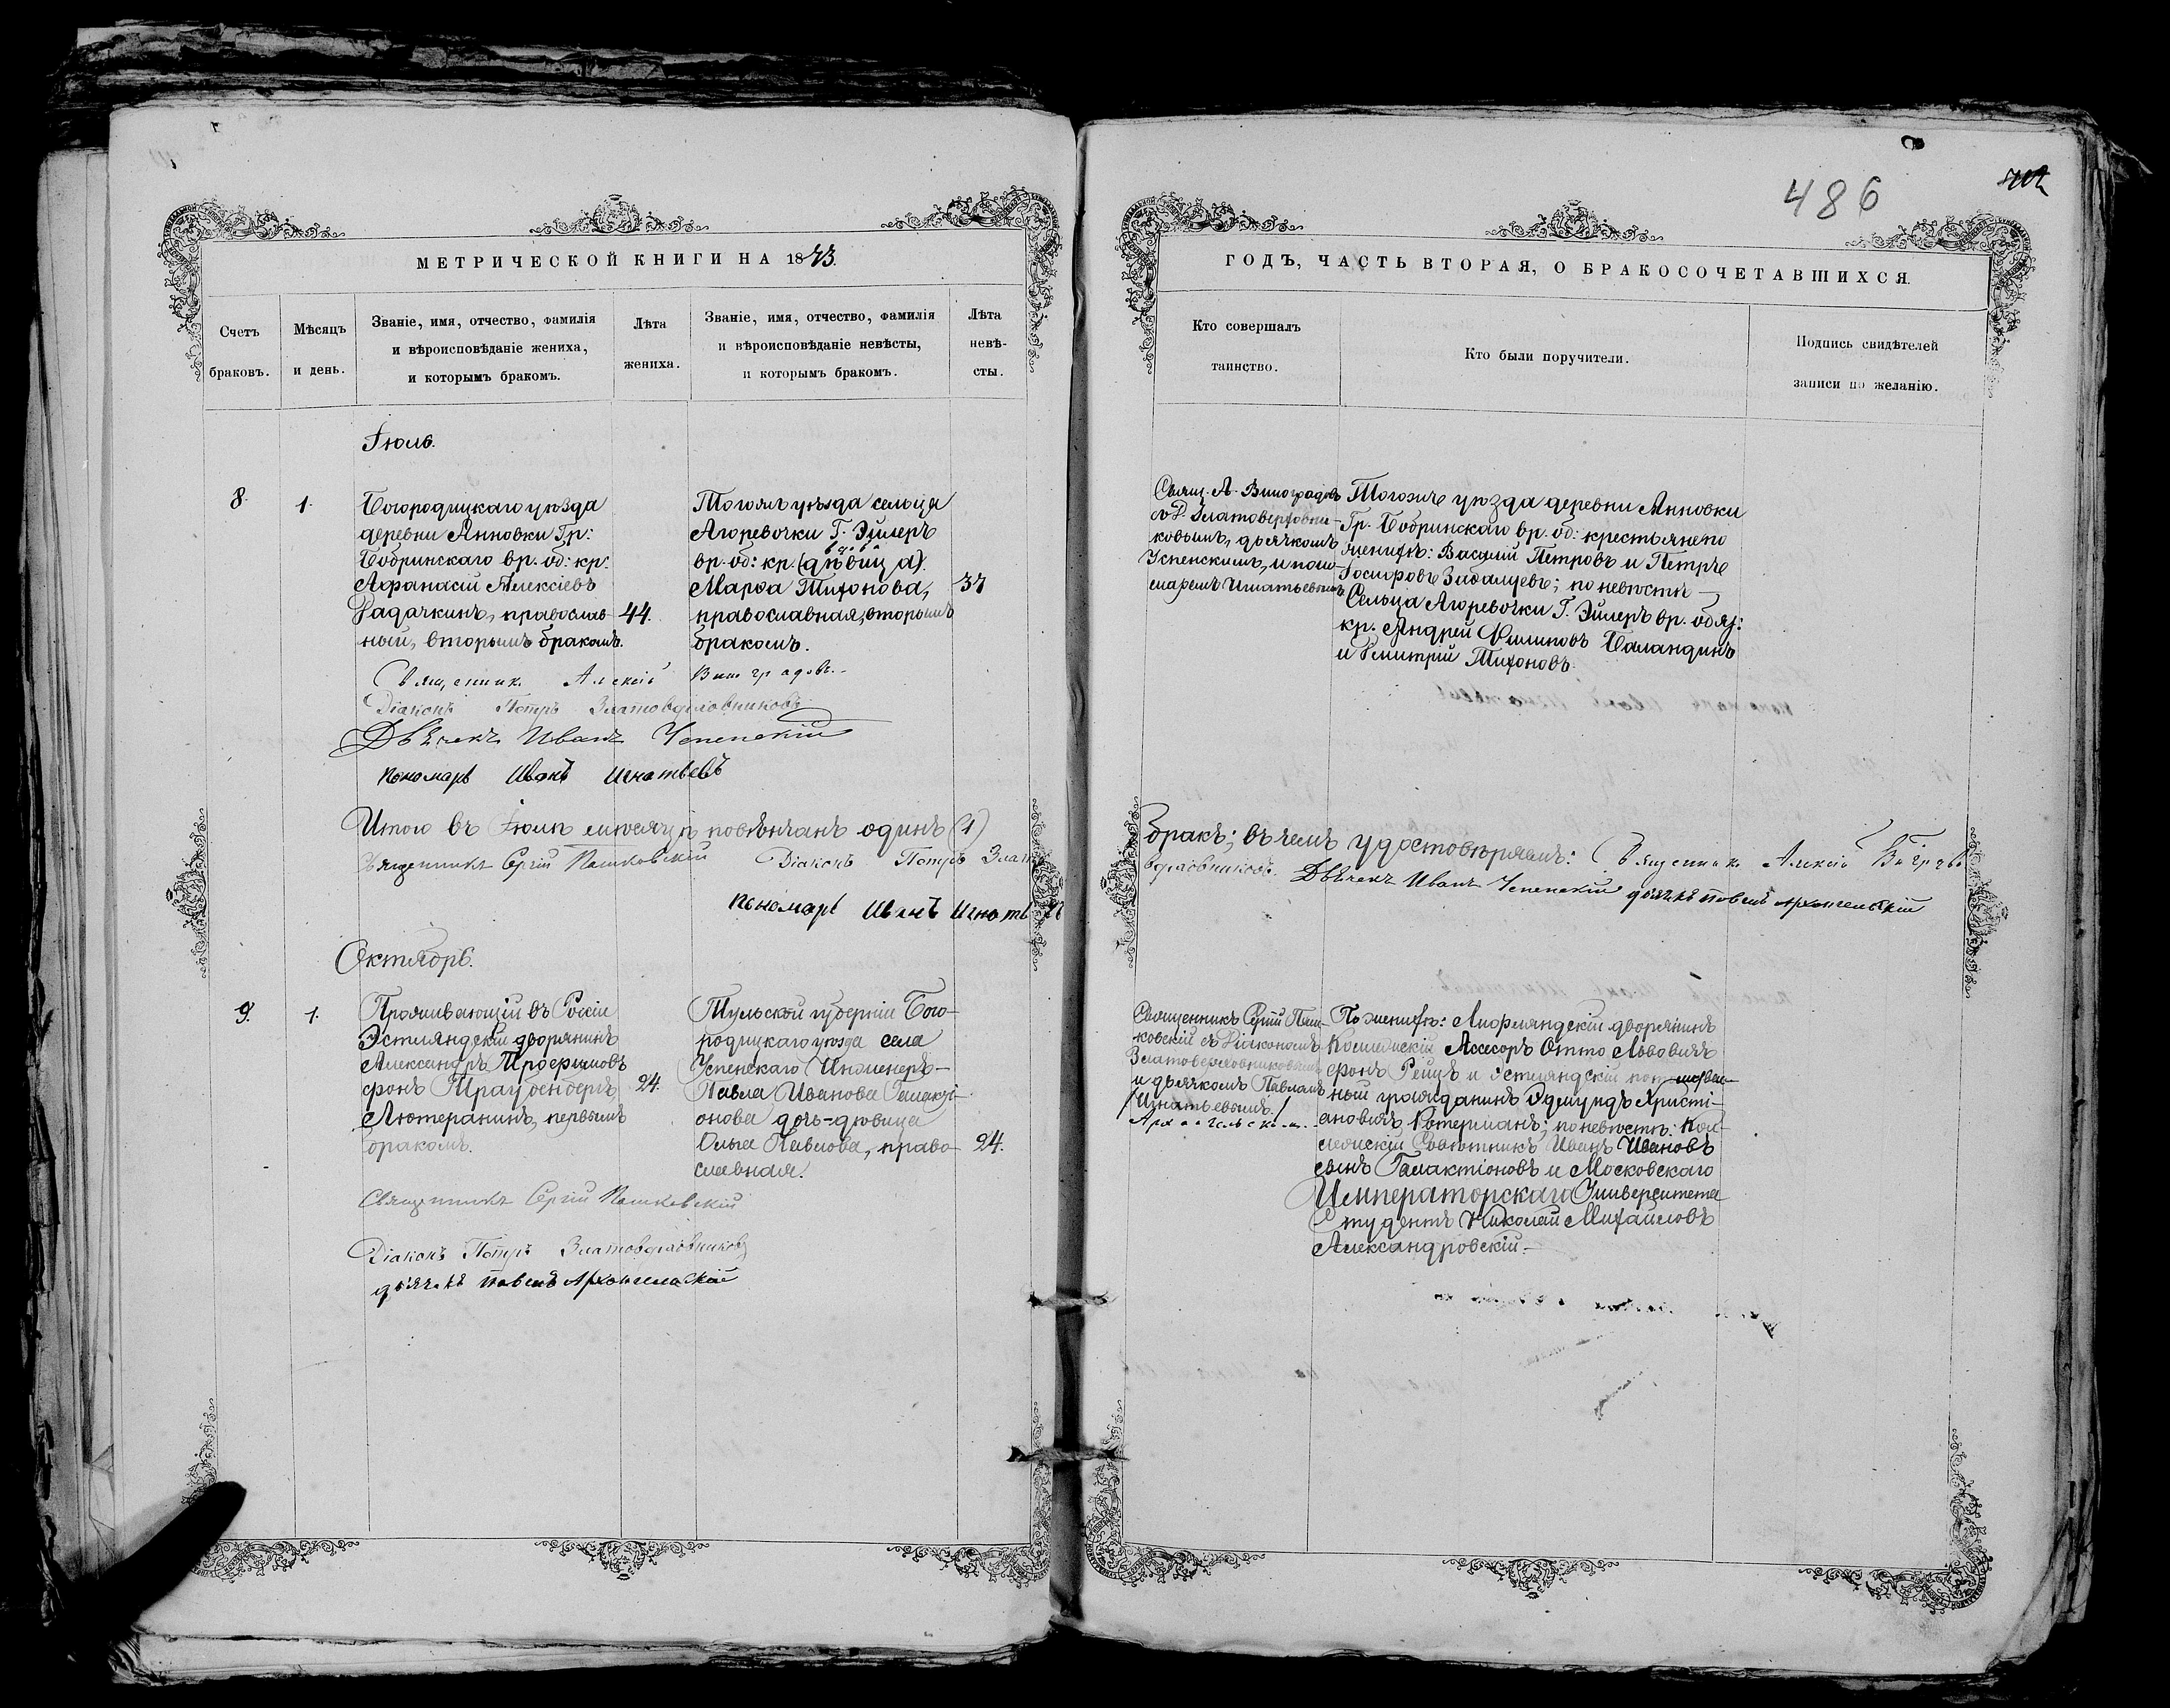 486
МЕТРИЧЕСКОЙ КНИГИ НА 1873.
ГОДЪ, ЧАСТЬ ВТОРАЯ, О БРАКОСОЧЕТАВШИХСЯ.
Счетъ
браковъ.
Мѣсяцъ
и день.
Званіе, имя, отчество, фамилія
и вѣроисповѣданіе жениха,
и которымъ бракомъ.
Лѣта
жениха.
Званіе, имя, отчество, фамилія
и вѣроисповѣданіе невѣсты,
и которымъ бракомъ.
Лѣта
невѣ-
сты.
Кто совершалъ
таинство.
Кто были поручители.
Подпись свидѣтелей
записи по желанію.
Іюль.
8.
1.
Богородицкаго уѣзда
деревни Анновки Гр:
Бобринскаго вр. об: кр:
Афанасій Алексіевъ
Радочкинъ, православ-
ный, вторымъ бракомъ.
44.
Тогожъ уѣзда сельца
Агоревочки Г. Эйлеръ
вдова
вр. об: кр. (дѣвица).
Марѳа Тихонова,
православная, вторымъ
бракомъ.
37
Свящ. А. Виноградовъ
съ Д. Златоверховни-
ковымъ, дьячкомъ
Успенскимъ, и поно-
маремъ Игнатьевымъ
Тогожъ уѣзда деревни Анновки
Гр. Бобринскаго вр. об: крестьяне по
женихѣ: Василій Петровъ и Петръ
по невѣстѣ
Сельца Агоревочки Г. Эйлеръ вр. обяз:
кр. Андрей Филиповъ Баландинъ
и Дмитрій Тихоновъ.
Священникъ Алексій Виноградовъ.
Діаконъ Петръ Златоверховниковъ
Дьячекъ Иванъ Успенскій
Пономарь Иванъ Игнатьевъ
Итого въ Іюлѣ мѣсяцѣ повѣнчанъ одинъ (1)
бракъ; въ чемъ удостовѣряемъ: Священникъ Алексій
Священникъ Сергій Пашковскій Діаконъ Петръ Злато
верховниковъ. Дьячекъ Иванъ Успенскій дьячекъ Павелъ Архангельскій
Пономарь Иванъ Игнатьевъ
Октябрь.
9.
1.
Проживающій въ Россіи
Эстляндскій дворянинъ
Александръ
фонъ Траубенбергъ,
Лютеранинъ, первымъ
бракомъ.
24.
Тульской губерніи Бого-
родицкаго уѣзда села
Успенскаго Инженеръ-
Павла Иванова Галакті-
онова дочь-дѣвица
Ольга Павлова, право-
славная.
24.
Священникъ Сергій Паш-
ковскій съ Діакономъ
Златоверховниковымъ
и дьячкомъ Павломъ
/Игнатьевымъ/
Архангельскимъ.
По женихѣ: Лифляндскій дворянинъ
Коллежскій Ассесоръ Отто Львовичъ
фонъ Рейцъ и Эстляндскій потомствен-
ный гражданинъ Эдмундъ Христі-
ановичъ Ротерманъ; по невѣстѣ: Кол-
лежскій Совѣтникъ Иванъ Ивановъ
сынъ Галактіоновъ и Московскаго
Императорскаго Университета
Студентъ Николай Михайловъ
Александровскій.
Священникъ Сергій Пашковскій
Діаконъ Петръ Златоверховниковъ
дьячекъ Павелъ Архангельскій